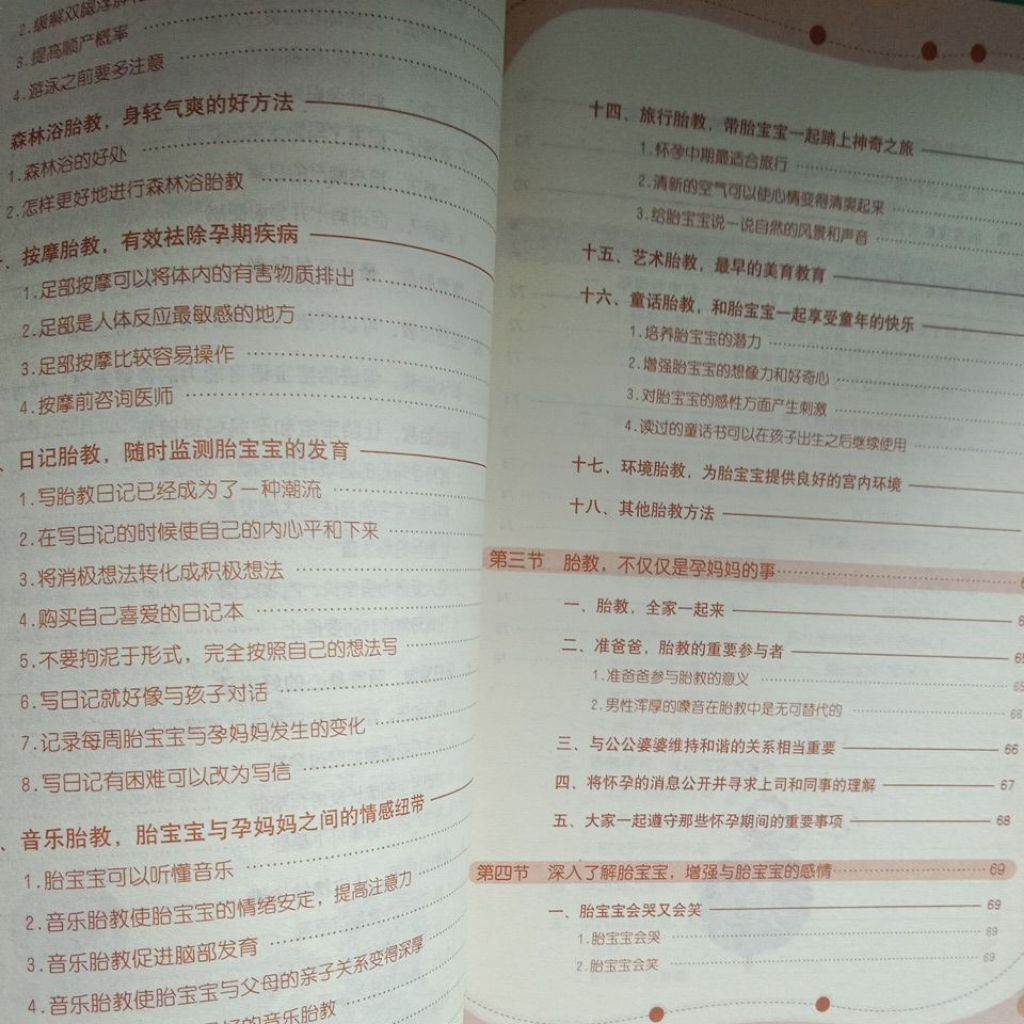 2.缓解双腿浮肿
3.提高顺产概率
4.游泳之前要多注意
森林浴胎教，身轻气爽的好方法
1.森林浴的好处
2.怎样更好地进行森林浴胎教
、按摩胎教，有效祛除孕期疾病
1.足部按摩可以将体内的有害物质排出
2.足部是人体反应最敏感的地方
3.足部按摩比较容易操作
4.按摩前咨询医师
、日记胎教，随时监测胎宝宝的发育
1.写胎教日记已经成为了一种潮流
2.在写日记的时候使自己的内心平和下来
3.将消极想法转化成积极想法
4.购买自己喜爱的日记本
5.不要拘泥于形式，完全按照自己的想法写
6.写日记就好像与孩子对话
7.记录每周胎宝宝与孕妈妈发生的变化
8.写日记有困难可以改为写信
、音乐胎教，胎宝宝与孕妈妈之间的情感纽带
1.胎宝宝可以听懂音乐
2.音乐胎教使胎宝宝的情绪安定，提高注意力
3.音乐胎教促进脑部发育
4.音乐胎教使胎宝宝与父母的亲子关系变得深厚
好的音乐胎教
十四、旅行胎教，带胎宝宝一起踏上神奇之旅
1.怀孕中期最适合旅行
2.清新的空气可以使心情变得清爽起来
3.给胎宝宝说一说自然的风景和声音
十五、艺术胎教，最早的美育教育
十六、童话胎教，和胎宝宝一起享受童年的快乐
1.培养胎宝宝的潜力
2.增强胎宝宝的想像力和好奇心
3.对胎宝宝的感性方面产生刺激
4.读过的童话书可以在孩子出生之后继续使用
十七、环境胎教，为胎宝宝提供良好的宫内环境
十八、其他胎教方法
第三节 胎教，不仅仅是孕妈妈的事
一、胎教，全家一起来
二、准爸爸，胎教的重要参与者 65
1.准爸爸参与胎教的意义 65
2.男性浑厚的嗓音在胎教中是无可替代的 66
三、与公公婆婆维持和谐的关系相当重要 66
四、将怀孕的消息公开并寻求上司和同事的理解 67
五、大家一起遵守那些怀孕期间的重要事项 68
第四节 深入了解胎宝宝，增强与胎宝宝的感情 69
一、胎宝宝会哭又会笑 69
1.胎宝宝会哭 69
2.胎宝宝会笑 69